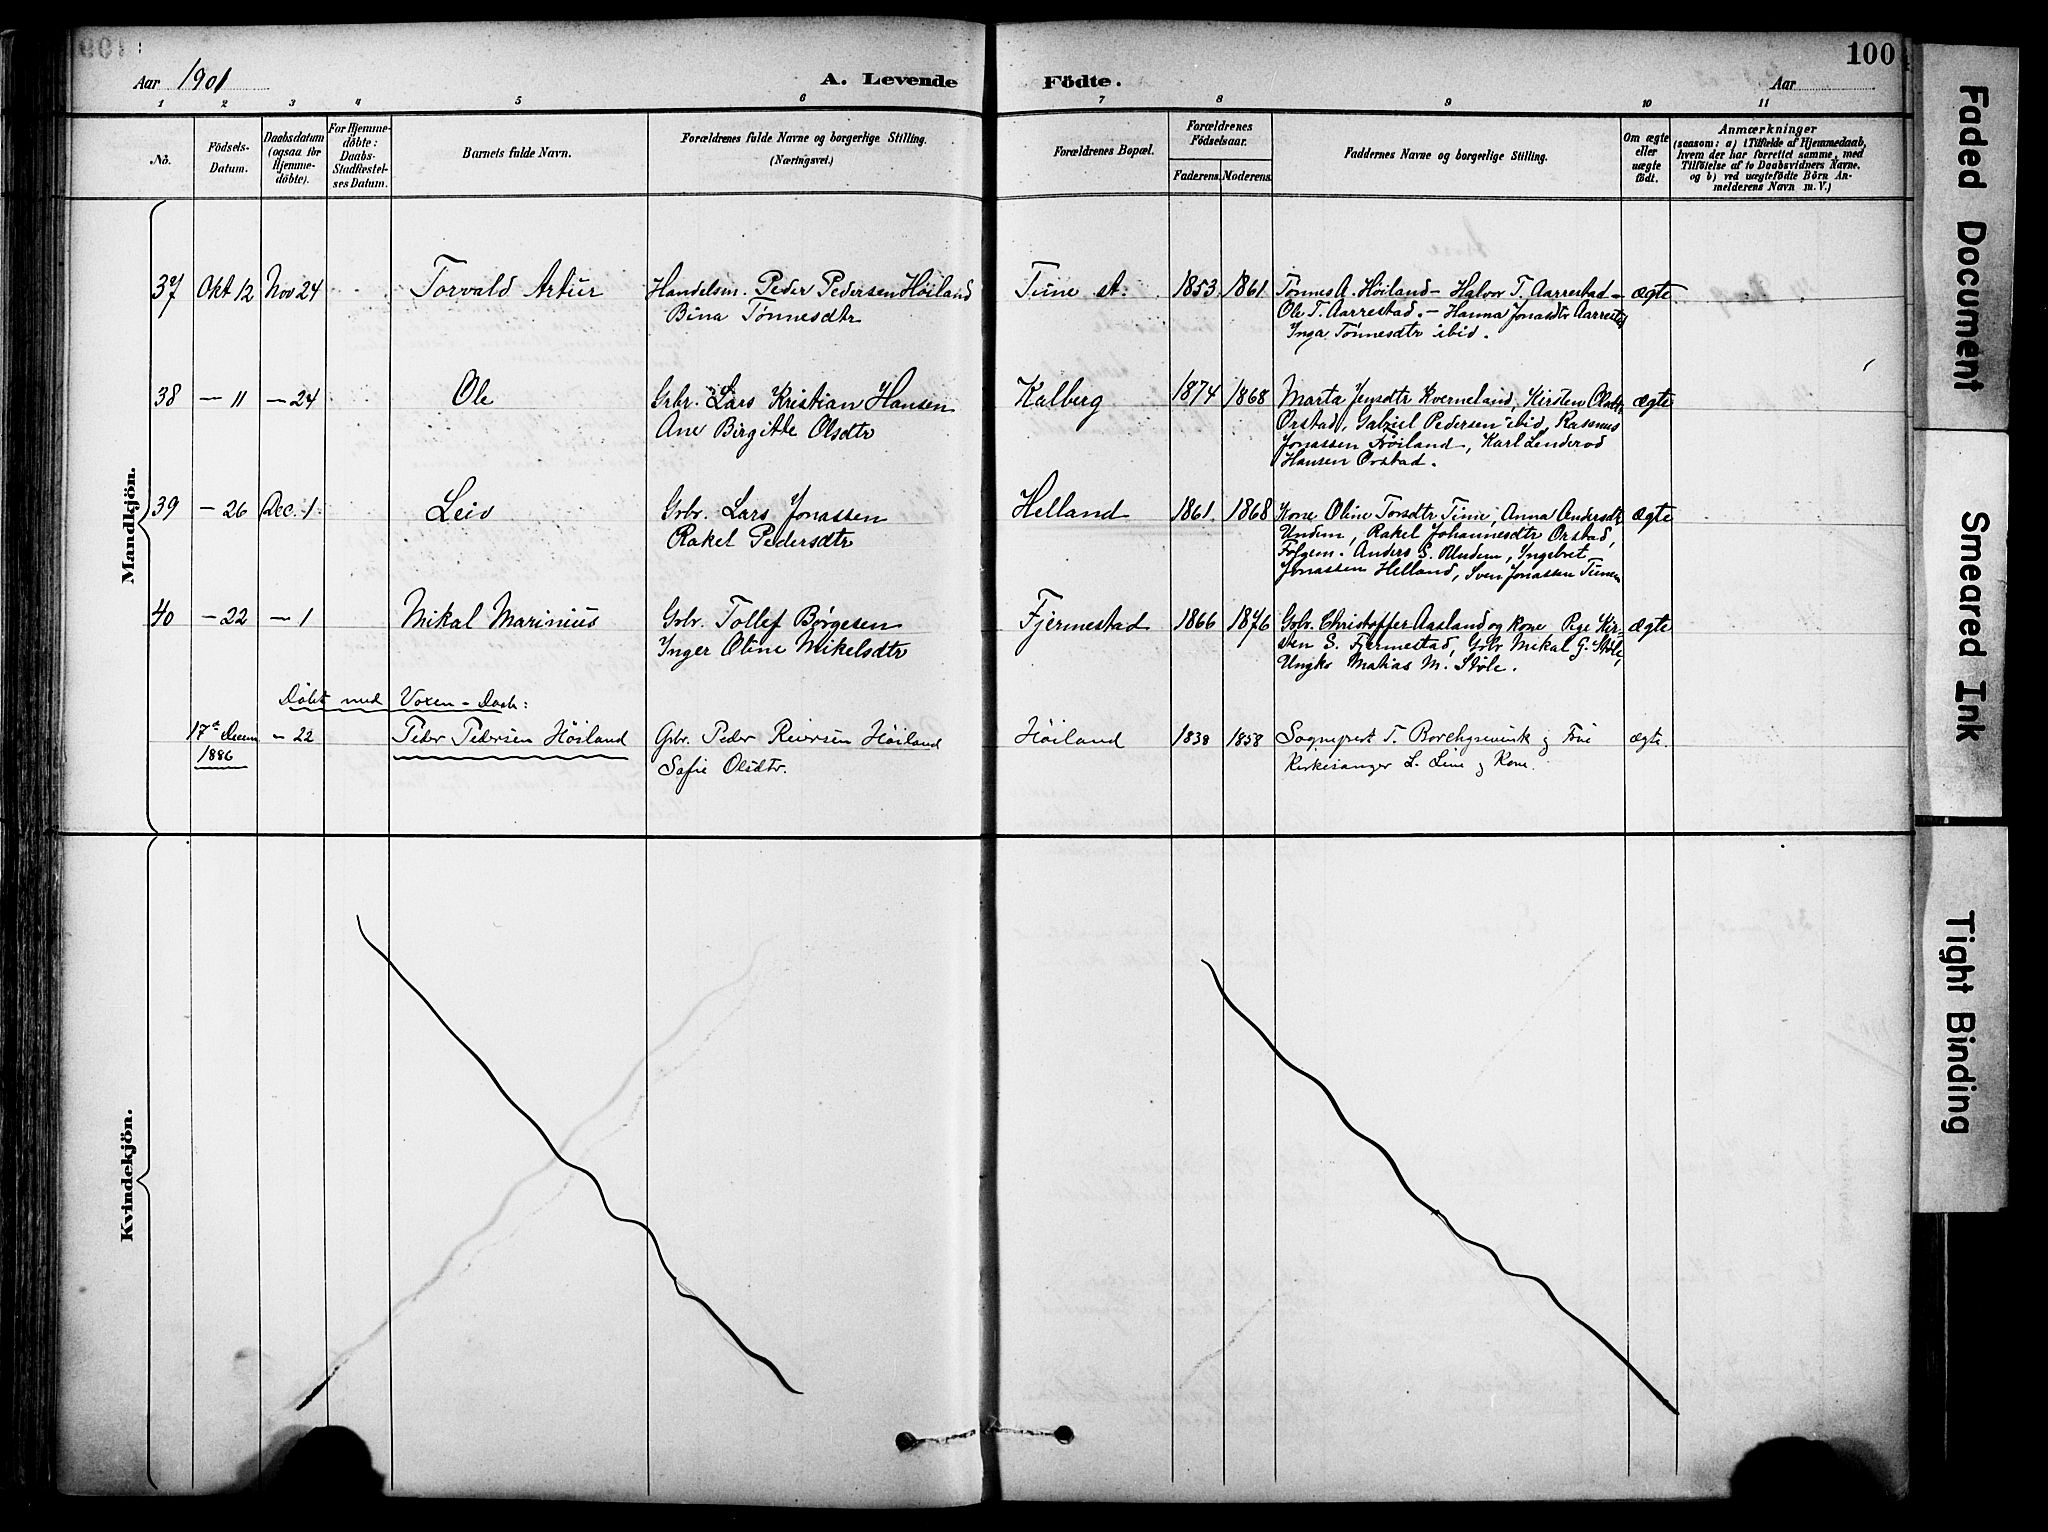 100
Aar 1901 A. Levende Födte. Aar
1 2 3 4 5 6 7 8 9 10 11
No. Födsels-Datum. Daabsdatum (ogsaa for Hjemme-döbte). For Hjemme-döbte: Daabs-Stadfæstel-ses Datum. Barnets fulde Navn. Forældrenes fulde Navne og borgerlige Stilling. (Næringsvei.) Forældrenes Bopæl. Forældrenes Födselsaar. Faderens. Moderens. Faddernes Navne og borgerlige Stilling. Om ægte eller uægte födt. Anmærkninger (saasom: a) i Tilfælde af Hjemmedaab, hvem der har forrettet samme, med Tilföielse af to Daabsvidners Navne. og b) ved uægtefödte Börn An-melderens Navn m. V.)
Mandkjön.
37 Okt 12 Nov 24 Torvald Artur Handelsm. Peder Pedersen Höiland Time st. 1853 1861 Tønnes A. Höiland - Halvor T. Aarrestad - ægte
Bina Tønnesdtr Ole T. Aarrestad. - Hanna Jonasdtr Aarrestad
Inga Tønnesdtr ibid.
38 - 11 - 24 Ole Grbr. Lars Kristian Hansen Kalberg 1874 1868 Marta Jensdtr Kverneland, Kirsten Olsdtr ægte
Ane Birgitte Olsdtr Orstad, Gabriel Pedersen ibid, Rasmus
Jonassen Fröiland, Karl Lenderod
Hansen Orstad.
39 - 26 Dec. 1 Leiv Grbr. Lars Jonassen Helland 1861. 1868 Kone Oline Torsdtr Time, Anna Andersdtr ægte
Rakel Pedersdtr Undem, Rakel Johannesdtr Orstad,
Følgem. Anders G. Undem, Ingebret
Jonassen Helland, Sven Jonassen Time
40 - 22 - 1 Mikal Marinius Grbr. Tollef Børgesen Fjermestad 1866 1876 Grbr. Christoffer Aasland og kone Pige Kir- ægte
Inger Oline Mikelsdtr sten S. Fjermestad, Grbr Mikal G. Støle,
Ungkr Matias M. Støle.
Døbt med Voxen-Daab:
17de Decem 1886 - 22 Peder Pedersen Höiland Grbr. Peder Reiersen Höiland Höiland 1838 1858 Sogneprest T. Borchgrevink og Frue ægte.
Sofie Olsdtr. Kirkesanger L. Line og Kone.
Kvindekjön.
Faded Document
Smeared Ink
Tight Binding